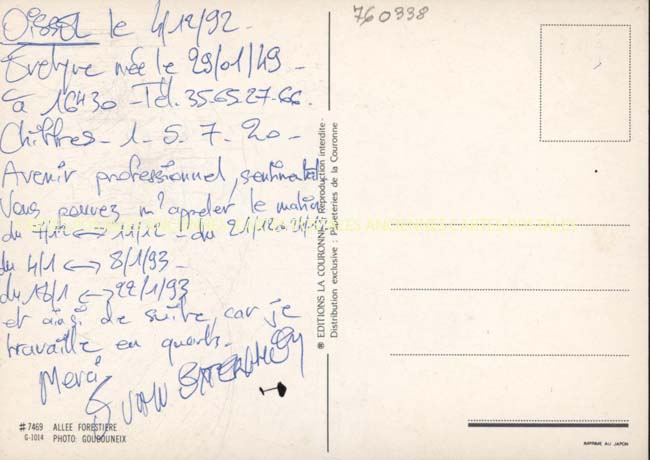 Oissel le 4/12/92.
Evelyne née le 29/01/49 -
à 16H30 - Tél. 35.65.27.66.
Chiffres - 1 - 5. 7 - 20 -
Avenir professionnel, sentimental
Vous pouvez m'appeler le matin
du 7/12 <-> 11/12 - du 21/12
du 4/1 <-> 8/1/93 -
du <-> 22/1/93
et ainsi de suite, car je
travaille en quarts -
Merci
760338
® EDITIONS LA COURONNE - Reproduction interdite -
Distribution exclusive : Papeteries de la Couronne
# 7469 ALLEE FORESTIERE
G-1014 PHOTO GOUDOUNEIX
IMPRIME AU JAPON